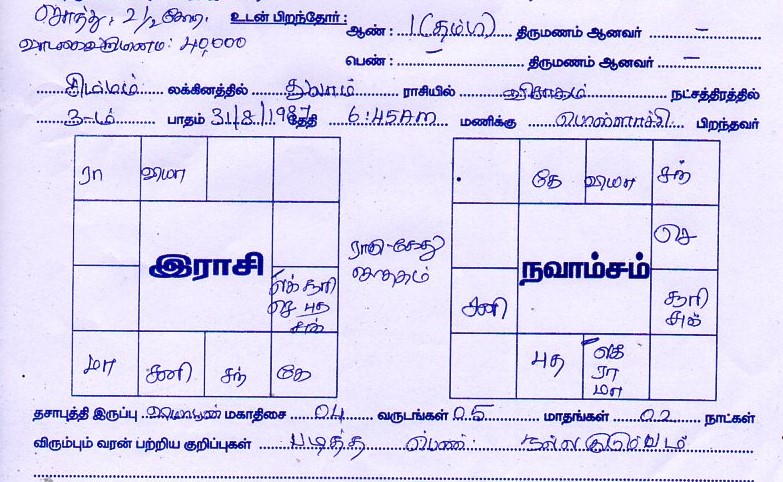 சொத்து, 2/½கோடி. உடன் பிறந்தோர் : ஆண் : 1 (தம்பி) திருமணம் ஆனவர் –
40,000 பெண் : – திருமணம் ஆனவர் –
சிம்மம் லக்கினத்தில் துலாம் ராசியில் விசாகம் நட்சத்திரத்தில்
3-ம் பாதம் 31/8/1987 தேதி 6:45AM மணிக்கு பொள்ளாச்சி பிறந்தவர்
ரா வியா
இராசி
லக் சூரி
செ புத
சுக்
மா சனி சந் கே
ராகு-கேது
ஜாதகம்
கே வியா சந்
செ
நவாம்சம்
சனி சூரி
சுக்
புத லக்
ரா
மா
தசாபுத்தி இருப்பு மகாதிசை 04 வருடங்கள் 05 மாதங்கள் 02 நாட்கள்
விரும்பும் வரன் பற்றிய குறிப்புகள் படித்த பெண். நல்ல குடும்பம்